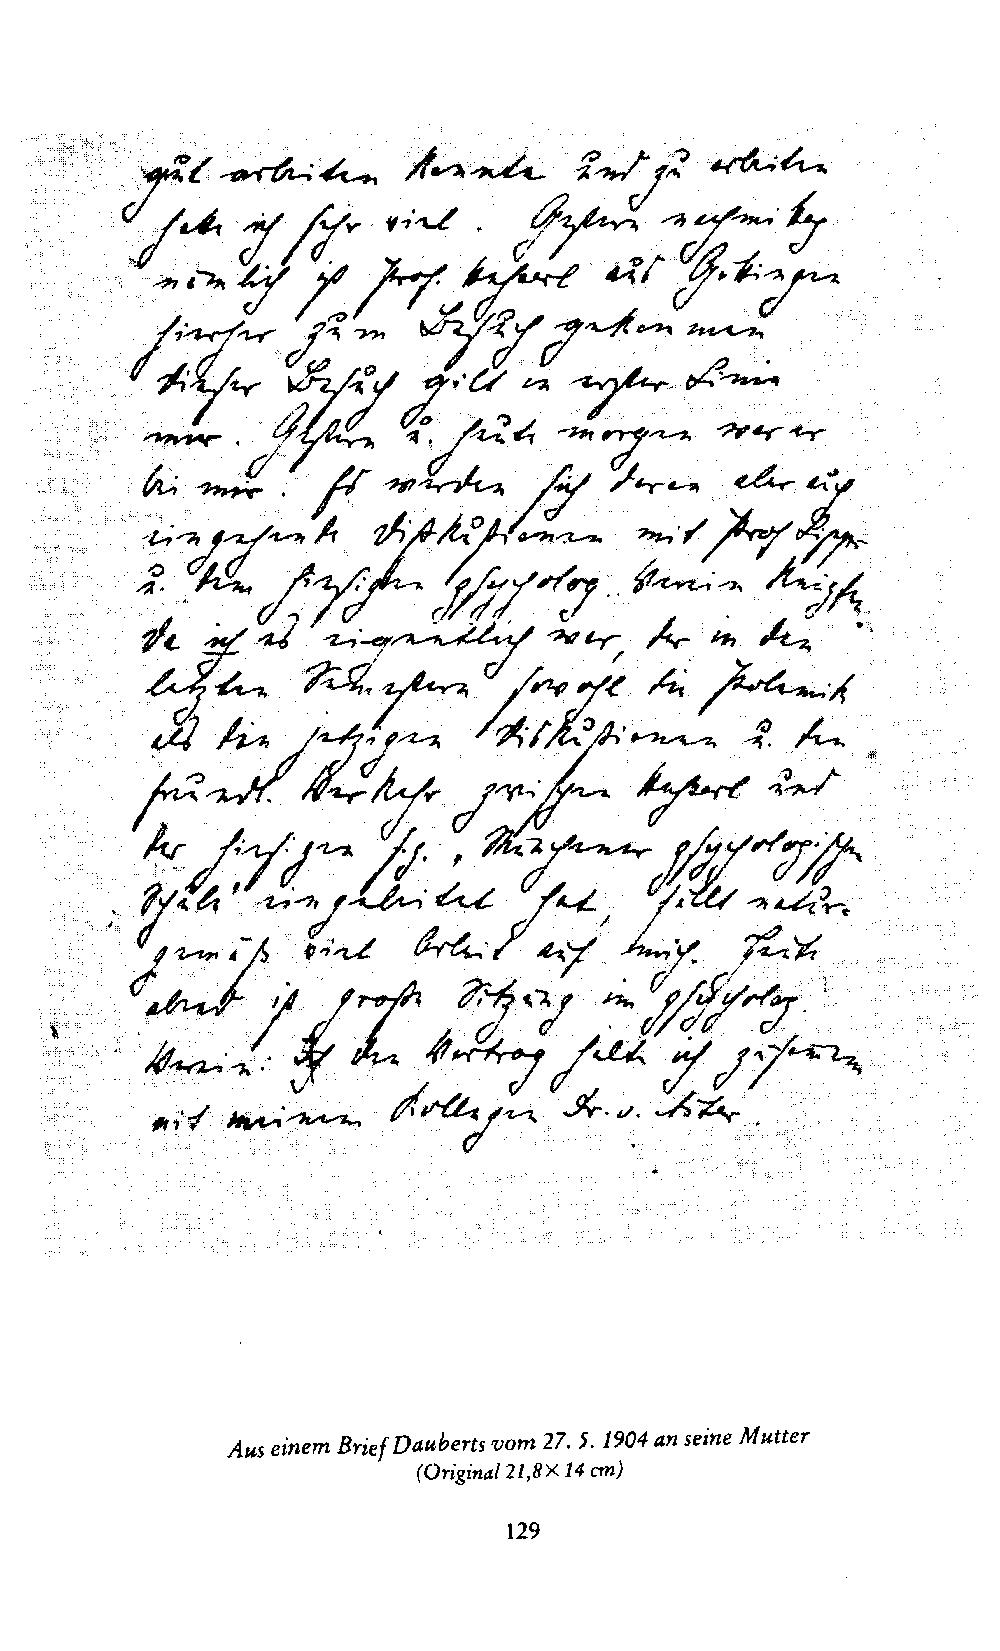 gut arbeiten konnte und zu arbeiten
hatte ich sehr viel. Gestern nachmittag
nämlich ist Prof. Husserl aus Göttingen
hierher zum Besuch gekommen
dieser Besuch gilt in erster Linie
mir. Gestern u. heute morgen war er
bei mir. Es werden sich daran aber auch
eingehende Diskussionen mit Prof Lipps
u. dem hiesigen psycholog. Verein knüpfen.
Da ich es eigentlich war, der in den
letzten Semestern sowohl die Polemik
als den jetzigen Diskussionen u. den
freundl. Verkehr zwischen Husserl und
der hiesigen s.g. „Münchener psychologischen
Schule" eingeleitet hat, fällt natur-
gemäß viel Arbeit auf mich. Heute
abend ist große Sitzung im psycholog.
Verein: den Vortrag halte ich zusammen
mit meinem Kollegen Dr. v. Aster.
Aus einem Brief Dauberts vom 27. 5. 1904 an seine Mutter
(Original 21,8×14 cm)
129